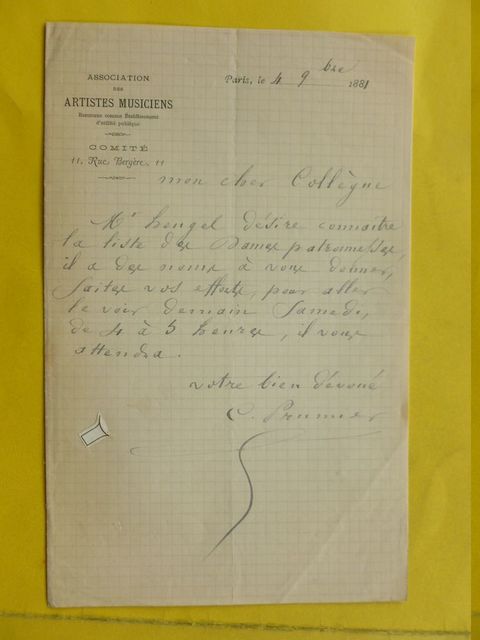 ASSOCIATION
DES
ARTISTES MUSICIENS
Reconnue comme Établissement
d'utilité publique
COMITÉ
11, Rue Bergère, 11
Paris, le 4 9bre 1881
mon cher Collègue
Mr heugel désire connaître
la liste des Dames patronnesses,
il a des noms à vous donner,
faites vos efforts, pour aller
le voir demain Samedi,
de 4 à 5 heures, il vous
attendra.
votre bien dévoué
C. Prumier